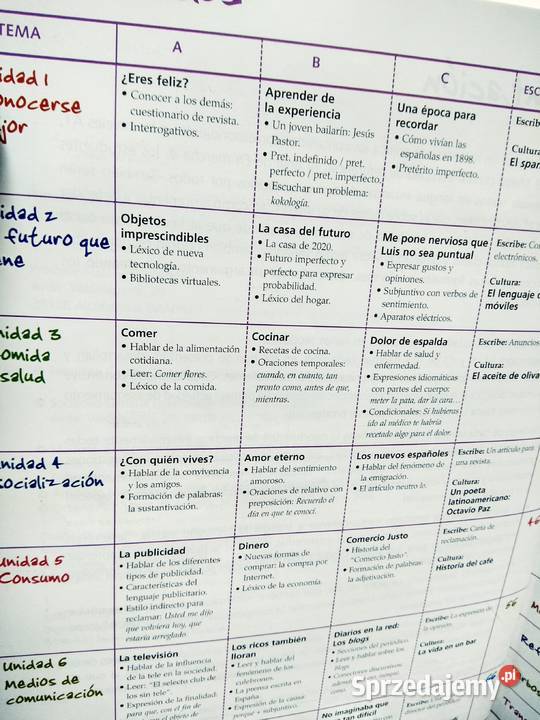 TEMA
A
B
C
ESC
idad 1
onocerse
jor
¿Eres feliz?
• Conocer a los demás:
cuestionario de revista.
• Interrogativos.
Aprender de
la experiencia
• Un joven bailarín: Jesús
Pastor.
• Pret. indefinido / pret.
perfecto / pret. imperfecto
• Escuchar un problema:
kokología.
Una época para
recordar
• Cómo vivían las
españolas en 1898.
• Pretérito imperfecto.
Escrib
Cultura
El span
idad 2
futuro que
ene
Objetos
imprescindibles
• Léxico de nueva
tecnología.
• Bibliotecas virtuales.
La casa del futuro
• La casa de 2020.
• Futuro imperfecto y
perfecto para expresar
probabilidad.
• Léxico del hogar.
Me pone nerviosa que
Luis no sea puntual
• Expresar gustos y
opiniones.
• Subjuntivo con verbos de
sentimiento.
• Aparatos eléctricos.
Escribe: Co
electrónicos.
Cultura:
El lenguaje d
móviles
nidad 3
omida
salud
Comer
• Hablar de la alimentación
cotidiana.
• Leer: Comer flores.
• Léxico de la comida.
Cocinar
• Recetas de cocina.
• Oraciones temporales:
cuando, en cuanto, tan
pronto como, antes de que,
mientras.
Dolor de espalda
• Hablar de salud y
enfermedad.
• Expresiones idiomáticas
con partes del cuerpo:
meter la pata, dar la cara…
• Condicionales: Si hubieras
ido al médico te habría
recetado algo para el dolor.
Escribe: Anuncios
Cultura:
El aceite de oliva
nidad 4
ocialización
¿Con quién vives?
• Hablar de la convivencia
y los amigos.
• Formación de palabras:
la sustantivación.
Amor eterno
• Hablar del sentimiento
amoroso.
• Oraciones de relativo con
preposición: Recuerdo el
día en que te conocí.
Los nuevos españoles
• Hablar del fenómeno de
la emigración.
• El artículo neutro lo.
Escribe: Un artículo para
una revista.
Cultura:
Un poeta
latinoamericano:
Octavio Paz
Unidad 5
Consumo
La publicidad
• Hablar de los diferentes
tipos de publicidad.
• Características del
lenguaje publicitario.
• Estilo indirecto para
reclamar: Usted me dijo
que volviera hoy, que
estaría arreglado.
Dinero
• Nuevas formas de
comprar: la compra por
Internet.
• Léxico de la economía.
Comercio Justo
• Historia del
"Comercio Justo".
• Formación de palabras:
la adjetivación.
Escribe: Carta de
reclamación.
Cultura:
Historia del café
Unidad 6
Medios de
comunicación
La televisión
• Hablar de la influencia
de la tele en la sociedad.
• Leer: "El selecto club de
los sin tele".
• Expresión de la finalidad:
para que, con el fin de
Los ricos también
lloran
• Leer y hablar del
fenómeno de los
culebrones.
• La prensa escrita en
España.
• Expresión de la causa:
porque + subjuntivo.
Diarios en la red:
Los blogs
• Secciones del periódico.
• Leer y hablar sobre los
blogs.
• Conectores discursivos:
No imaginaba que
Escribe: La expresión de
la opinión.
Cultura:
La vida en un bar
56
Sprzedajemy.pl